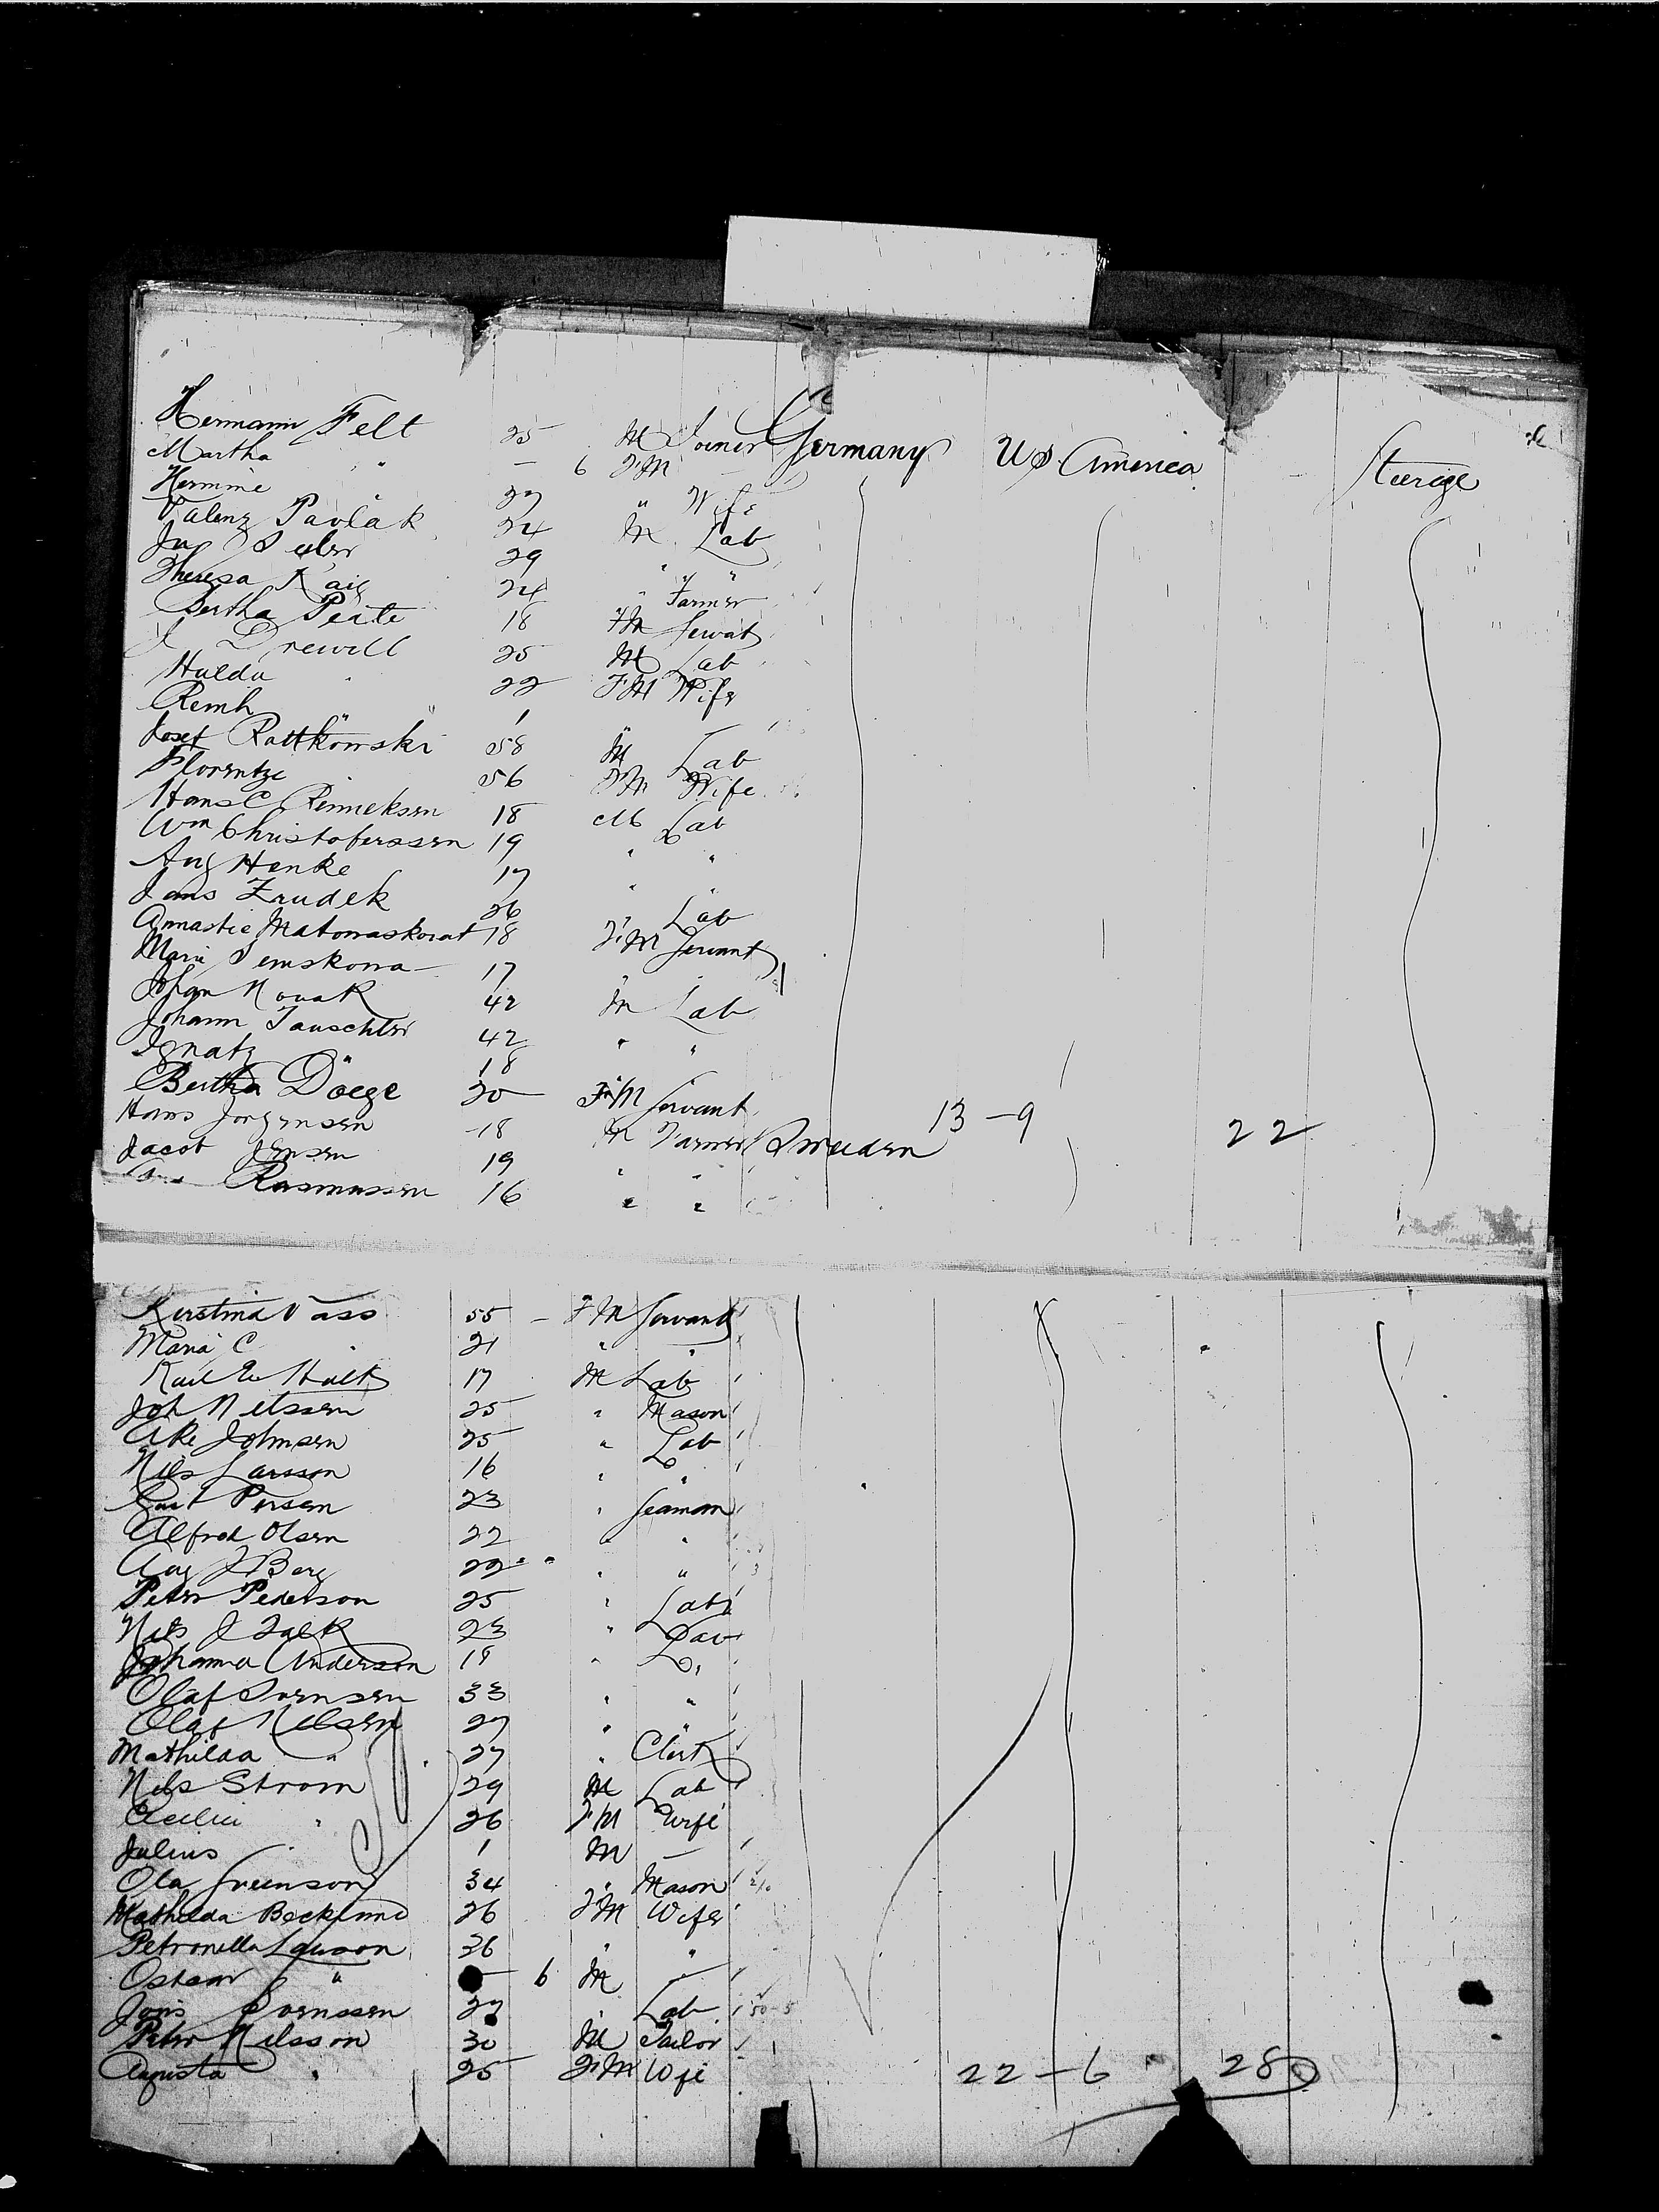 Hermann Felt 25 M Joiner Germany U S. America Steerage
Martha " - 6 F M -
Hermine " 27 " Wife
Valenz Pavlak 24 M Lab
29 " "
Theresa 24 " Farmer
Bertha 18 F M Servat
J Drewill 25 M Lab
Hulda " 22 F M Wife
" " 1
Josef Rattkowski 58 M Lab
Florentze 56 F M Wife
Hans C Renneksen 18 M Lab
Wm Christoferssen 19 " "
Aug Henke 17 " "
Jans Zrudek 26 Lab
Annastie Matowaskorat 18 F M Servant
Marie 17 "
Johan Novak 42 M Lab
Johann Tauschter 42 " "
Ignatz " 18
Bertha Döege 20 F M Servant
Hans Jorgensen 18 M Farmer Sweeden 13 - 9 22
Jacob Jensen 19 " "
Rasmussen 16 " "
Kerstina Vass 55 - F M Servant
Maria C 21 " "
Karl E Hult 17 M Lab
Joh Nelssen 25 " Mason
Ake Johnsen 25 " Lab
Nils Larsson 16 " "
Persen 23 " Seaman
Alfred Olsen 22 " "
Aug J Berg 22 " " " "
Peter Pederson 25 " Lab
Nils J Falk 23 " Lab
Johanna Anderson 18 "
Olaf Svensen 33 " "
Olaf Nelsen 27 " "
Mathilda " 27 " Clerk
Nels Strom 29 M Lab
Cecilia " 26 F M Wife
Julius " 1 M -
Ola Svenson 34 " Mason
Mathilda Becklund 26 F M Wife
Petronella Lawson 26 " "
Oskar " - 6 M -
Jons Svenssen 27 " Lab
Peter Nilsson 30 M Tailor
Augusta " 25 F M Wife 22 - 6 28